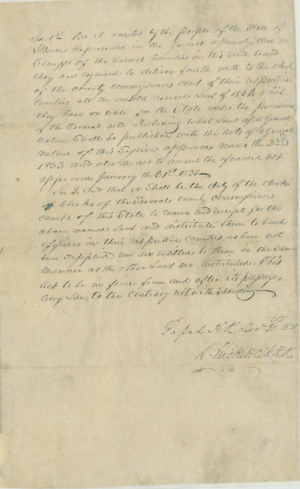 Sec 1st Be it enacted by the people of the State of
Illinois Represented in the General Assembly that the
of the several Counties in this state
they are required to deliver forth with to the Clerks
of the county commissioners court of their respective
Counties all the Revised Laws of which
they have on Sale for the State under the provisions
of the Several acts
shall be published with the acts of a general
nature of this Session approved March the 22nd
1833 and also the act to amend the aforesaid act
approved January the 31st 1835
Sec 2 that it shall be the duty of the clerks
Clerks of the Several county commissioners
courts of this State to receive and receipt for the
above named Laws and distribute them to such
officers in their respective counties as have not
been supplied and are entitled to them in the same
manner as the other Laws are distributed. This
act to be in force from and after its passage,
any Law to the contrary notwithstanding